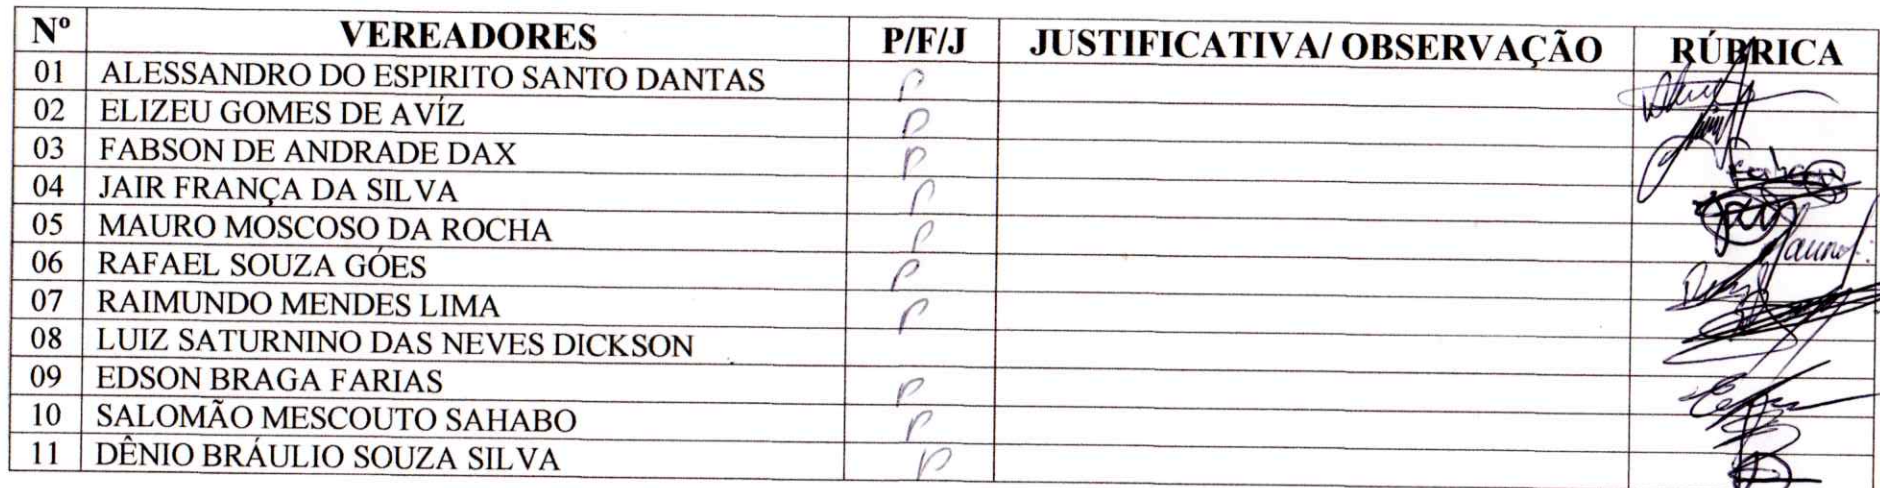 Nº VEREADORES P/F/J JUSTIFICATIVA/ OBSERVAÇÃO RÚBRICA
01 ALESSANDRO DO ESPIRITO SANTO DANTAS P
02 ELIZEU GOMES DE AVÍZ P
03 FABSON DE ANDRADE DAX P
04 JAIR FRANÇA DA SILVA P
05 MAURO MOSCOSO DA ROCHA P
06 RAFAEL SOUZA GÓES P
07 RAIMUNDO MENDES LIMA P
08 LUIZ SATURNINO DAS NEVES DICKSON
09 EDSON BRAGA FARIAS P
10 SALOMÃO MESCOUTO SAHABO P
11 DÊNIO BRÁULIO SOUZA SILVA P